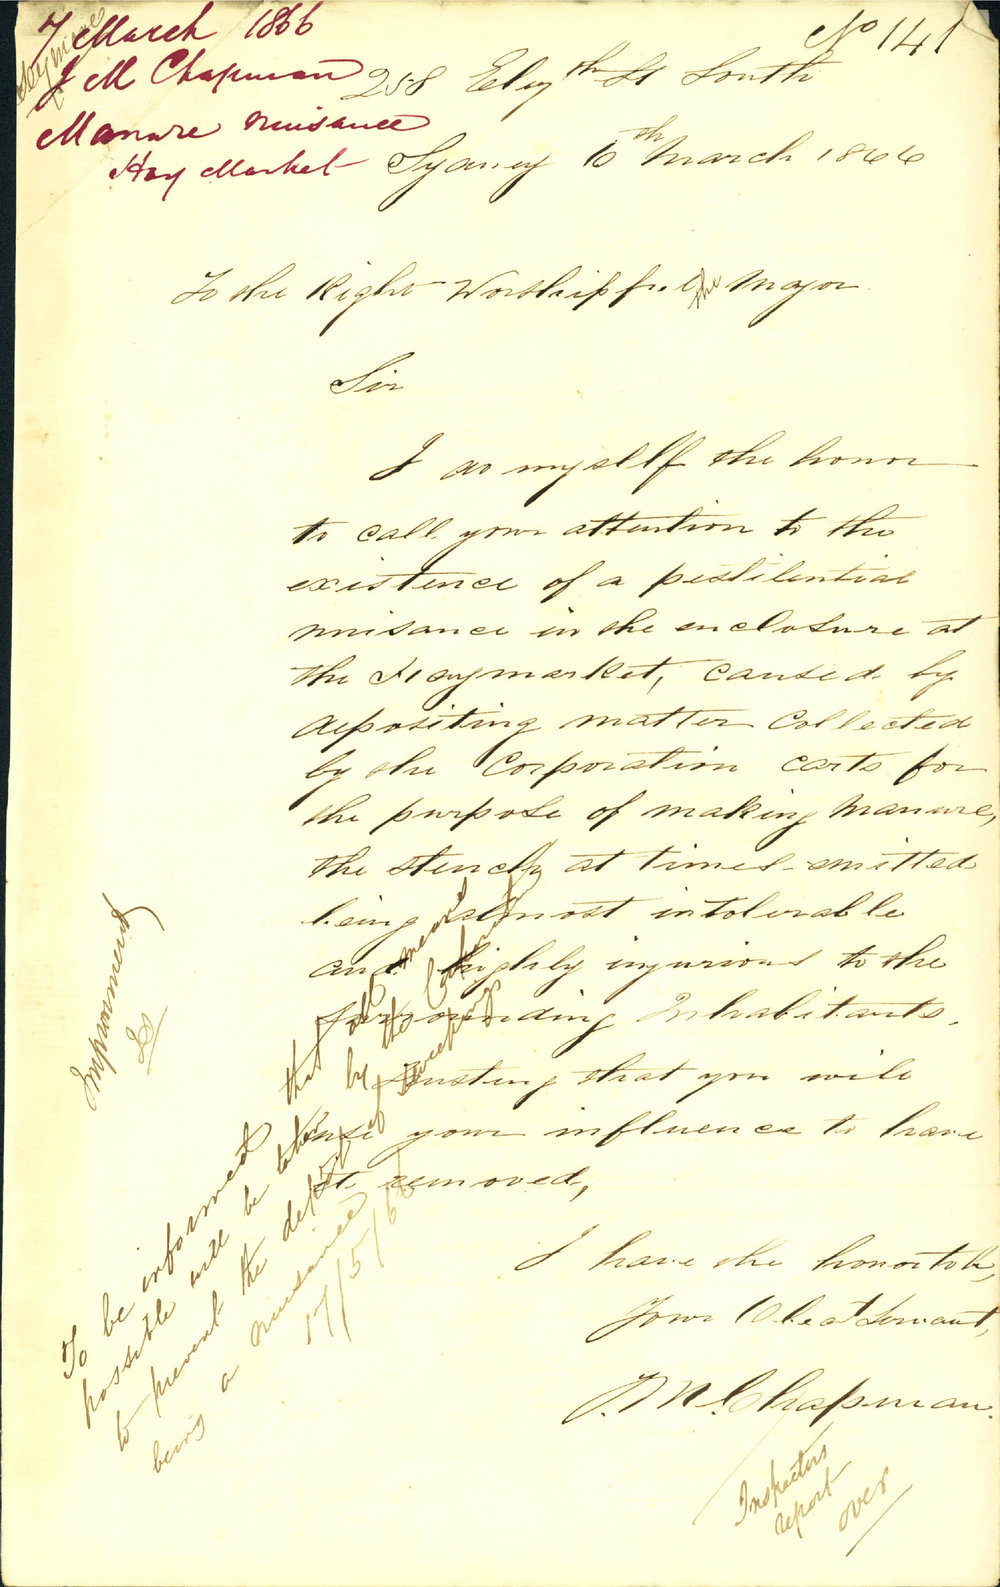 7 March 1866
J M Chapman
Manure Nuisance
Hay Market
No 141
258 Elizth St South
Sydney 6th March 1866
To the Right Worshipful the Mayor
Sir
I do myself the honor
to call your attention to the
existence of a pestilential
nuisance in the enclosure at
the Haymarket, caused by
depositing matter Collected
by the Corporation carts for
the purpose of making Manure,
the stench at times emitted
being almost intolerable
and highly injurious to the
surrounding Inhabitants.
Trusting that you will
use your influence to have
it removed,
I have the honor to be,
Your Obedt Servant,
J. M. Chapman.
Improvements
To be informed that all means
possible will be taken by the Corporation
to prevent the deposit of sweepings
being a nuisance
17/5/66
Inspectors
report
over